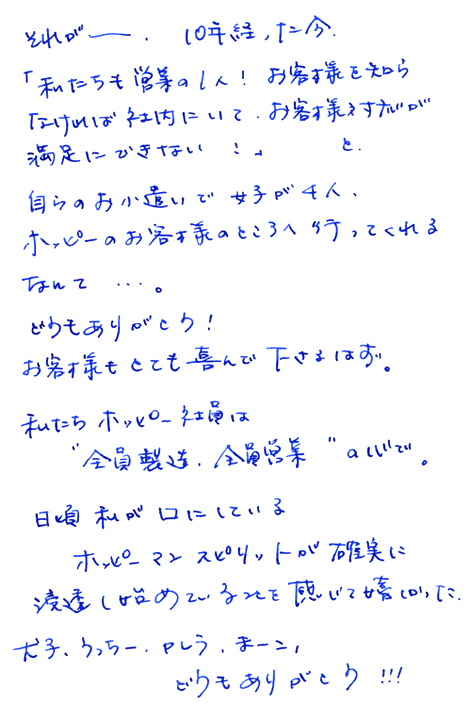 それがー、 10年経った今、
「私たちも営業の1人! お客様を知ら
なければ社内にいて、お客様を
満足にできない!」 と、
自らのお小遣いで女子が4人、
ホッピーのお客様のところへ行ってくれる
なんて …。
どうもありがとう!
お客様もとても喜んで下さるはず。
私たちホッピー社員は
"全員製造、全員営業"の心で。
日頃私が口にしている
ホッピーマンスピリットが確実に
浸透し始めていることを感じて嬉しかった。
うっちー、 まーこ、
どうもありがとう!!!